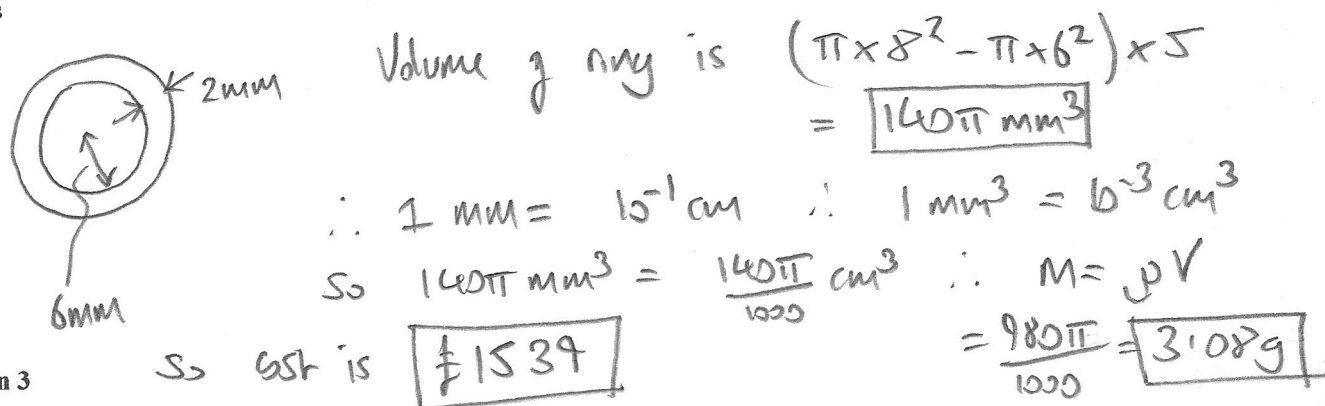 Volume of ring is (π×8² − π×6²) × 5
2mm
= 140π mm³
∴ 1 mm = 10⁻¹ cm ∴ 1 mm³ = 10⁻³ cm³
So 140π mm³ = 140π/1000 cm³ ∴ M = ρV
6mm
= 980π/1000 = 3.08g
So cost is £1539
n 3